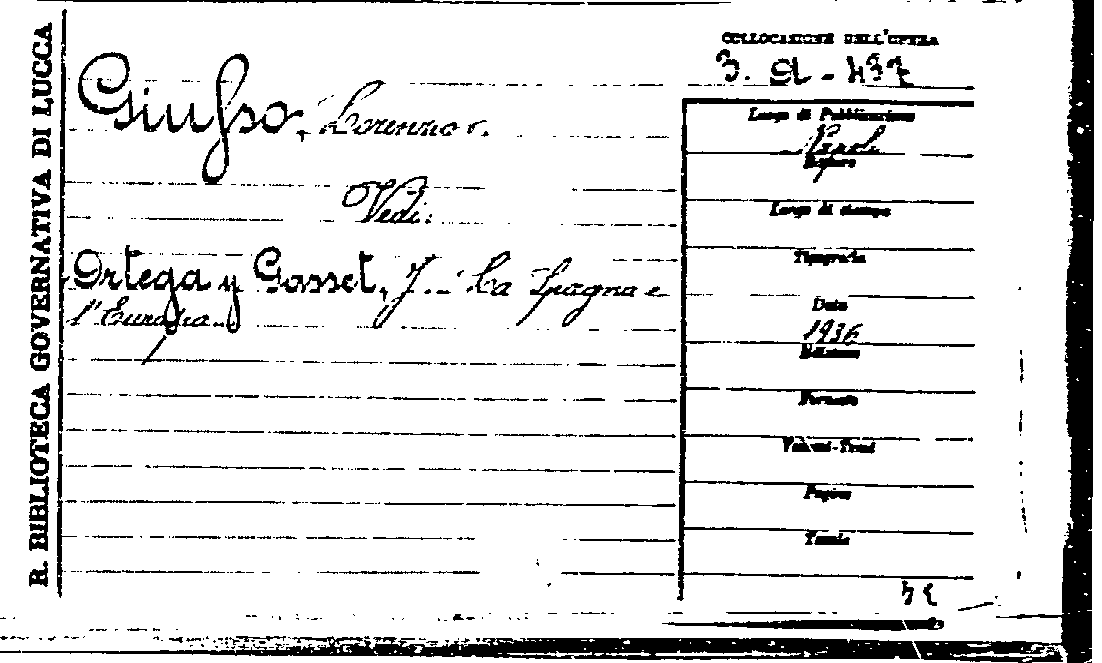 R. BIBLIOTECA GOVERNATIVA DI LUCCA
COLLOCAZIONE DELL'OPERA
3. a - 437
Giusso, Lorenzo
Vedi:
Ortega y Gasset, J. - La Spagna e
l'Europa.
Luogo di Pubblicazione
Napoli
Editore
Luogo di stampa
Tipografia
Data
1936
Edizione
Formato
Volumi-Tomi
Pagine
Tavole